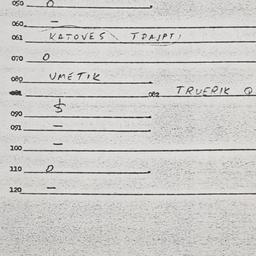 050 0
060 —
061 KATOVES \ TPAJPTI
070 0
080 UMETIK
082 TRUEPIK Q
090 $
091 —
100 —
110 0
120 —